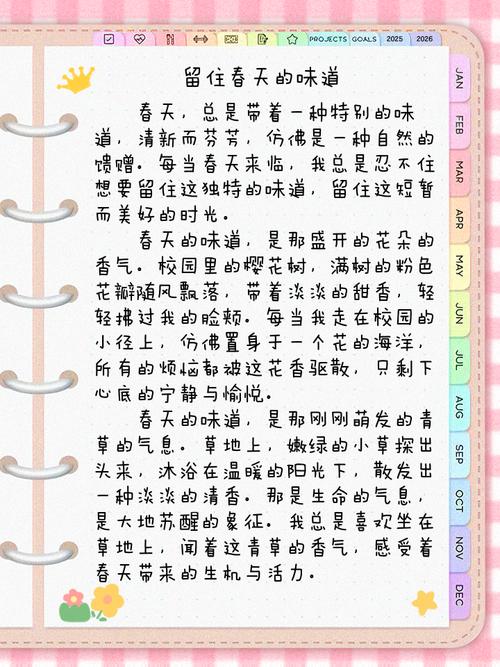 PROJECTS GOALS 2025 2026
留住春天的味道
春天，总是带着一种特别的味
道，清新而芬芳，仿佛是一种自然的
馈赠。每当春天来临，我总是忍不住
想要留住这独特的味道，留住这短暂
而美好的时光。
春天的味道，是那盛开的花朵的
香气。校园里的樱花树，满树的粉色
花瓣随风飘落，带着淡淡的甜香，轻
轻拂过我的脸颊。每当我走在校园的
小径上，仿佛置身于一个花的海洋，
所有的烦恼都被这花香驱散，只剩下
心底的宁静与愉悦。
春天的味道，是那刚刚萌发的青
草的气息。草地上，嫩绿的小草探出
头来，沐浴在温暖的阳光下，散发出
一种淡淡的清香。那是生命的气息，
是大地苏醒的象征。我总是喜欢坐在
草地上，闻着这青草的香气，感受着
春天带来的生机与活力。
JAN
FEB
MAR
APR
MAY
JUN
JUL
AUG
SEP
OCT
NOV
DEC